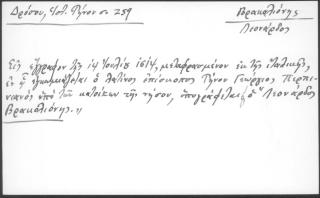 Δρόσου, Ἱστ. Τήνου σ. 259
Βρακαλιόνης
Λεονάρδος
Εἰς ἔγγραφον τῆς 14 Ἰουλίου 1614, μεταφρασμένον ἐκ τῆς ἰταλικῆς,
ἐν ᾧ ὁ λατῖνος ἐπίσκοπος Τήνου Γεώργιος Περπι-
νιανός ὑπό τῶν κατοίκων τῆς νήσου, ὑπογράφεται ὁ "Λεονάρδος
Βρακαλιόνης."